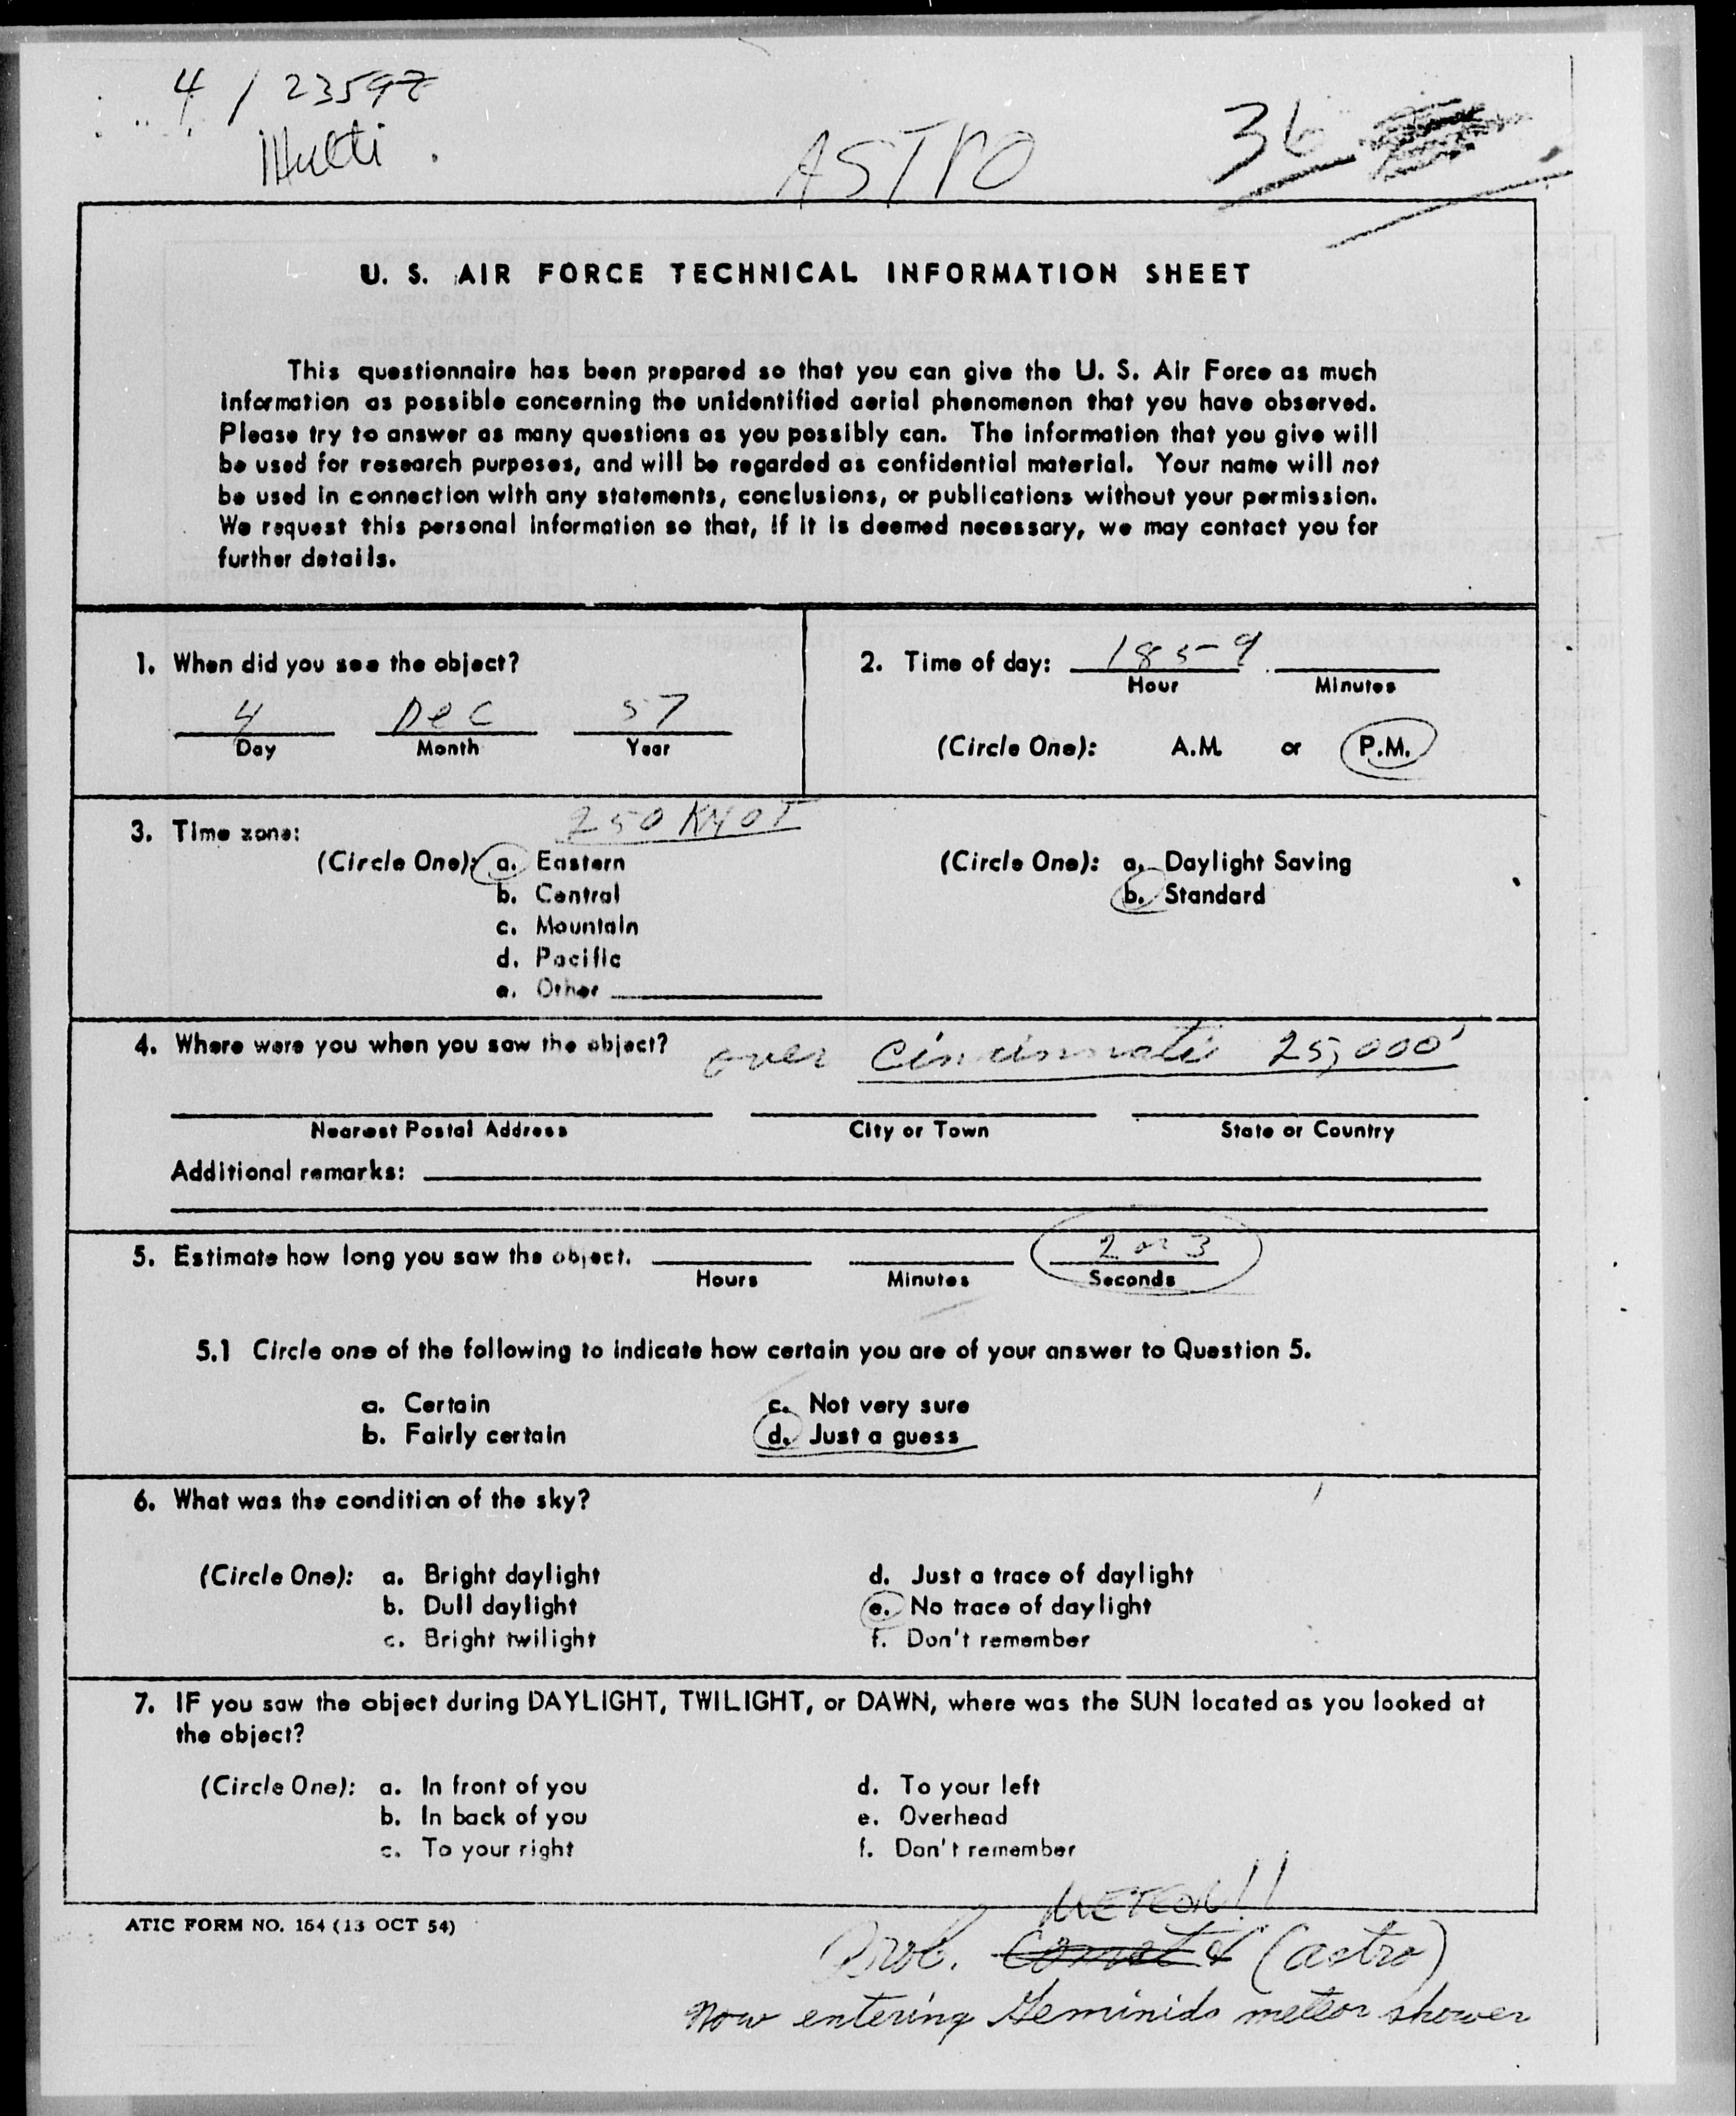 4 / 2359Z
Multi
ASTRO
36
U. S. AIR FORCE TECHNICAL INFORMATION SHEET
This questionnaire has been prepared so that you can give the U. S. Air Force as much
information as possible concerning the unidentified aerial phenomenon that you have observed.
Please try to answer as many questions as you possibly can. The information that you give will
be used for research purposes, and will be regarded as confidential material. Your name will not
be used in connection with any statements, conclusions, or publications without your permission.
We request this personal information so that, if it is deemed necessary, we may contact you for
further details.
1. When did you see the object?
4 Dec 57
Day Month Year
2. Time of day: 1859
Hour Minutes
(Circle One): A.M. or P.M.
250 KNOT
3. Time zone:
(Circle One): a. Eastern
b. Central
c. Mountain
d. Pacific
e. Other
(Circle One): a. Daylight Saving
b. Standard
4. Where were you when you saw the object? over Cincinnati 25,000'
Nearest Postal Address City or Town State or Country
Additional remarks:
5. Estimate how long you saw the object. 2 or 3
Hours Minutes Seconds
5.1 Circle one of the following to indicate how certain you are of your answer to Question 5.
a. Certain c. Not very sure
b. Fairly certain d. Just a guess
6. What was the condition of the sky?
(Circle One): a. Bright daylight d. Just a trace of daylight
b. Dull daylight e. No trace of daylight
c. Bright twilight f. Don't remember
7. IF you saw the object during DAYLIGHT, TWILIGHT, or DAWN, where was the SUN located as you looked at
the object?
(Circle One): a. In front of you d. To your left
b. In back of you e. Overhead
c. To your right f. Don't remember
ATIC FORM NO. 164 (13 OCT 54)
METEOR!!
Prob. Comet (astro)
Now entering Geminids meteor shower